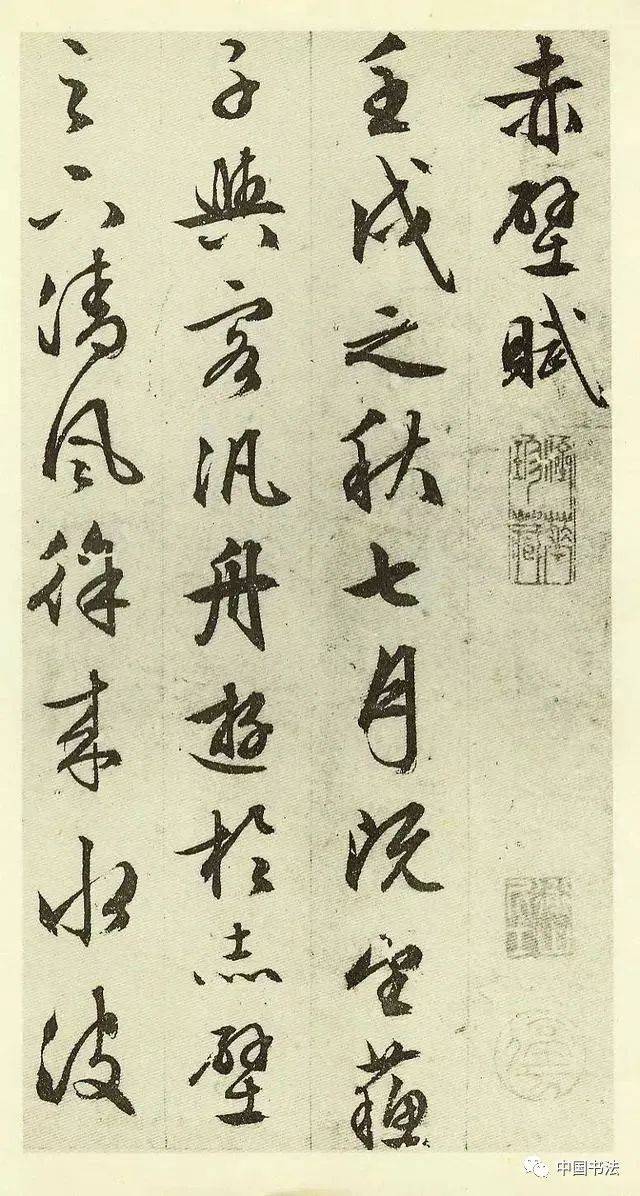 赤壁賦
壬戌之秋七月既望蘇
子與客汎舟遊於赤壁
之下清風徐來水波
中国书法